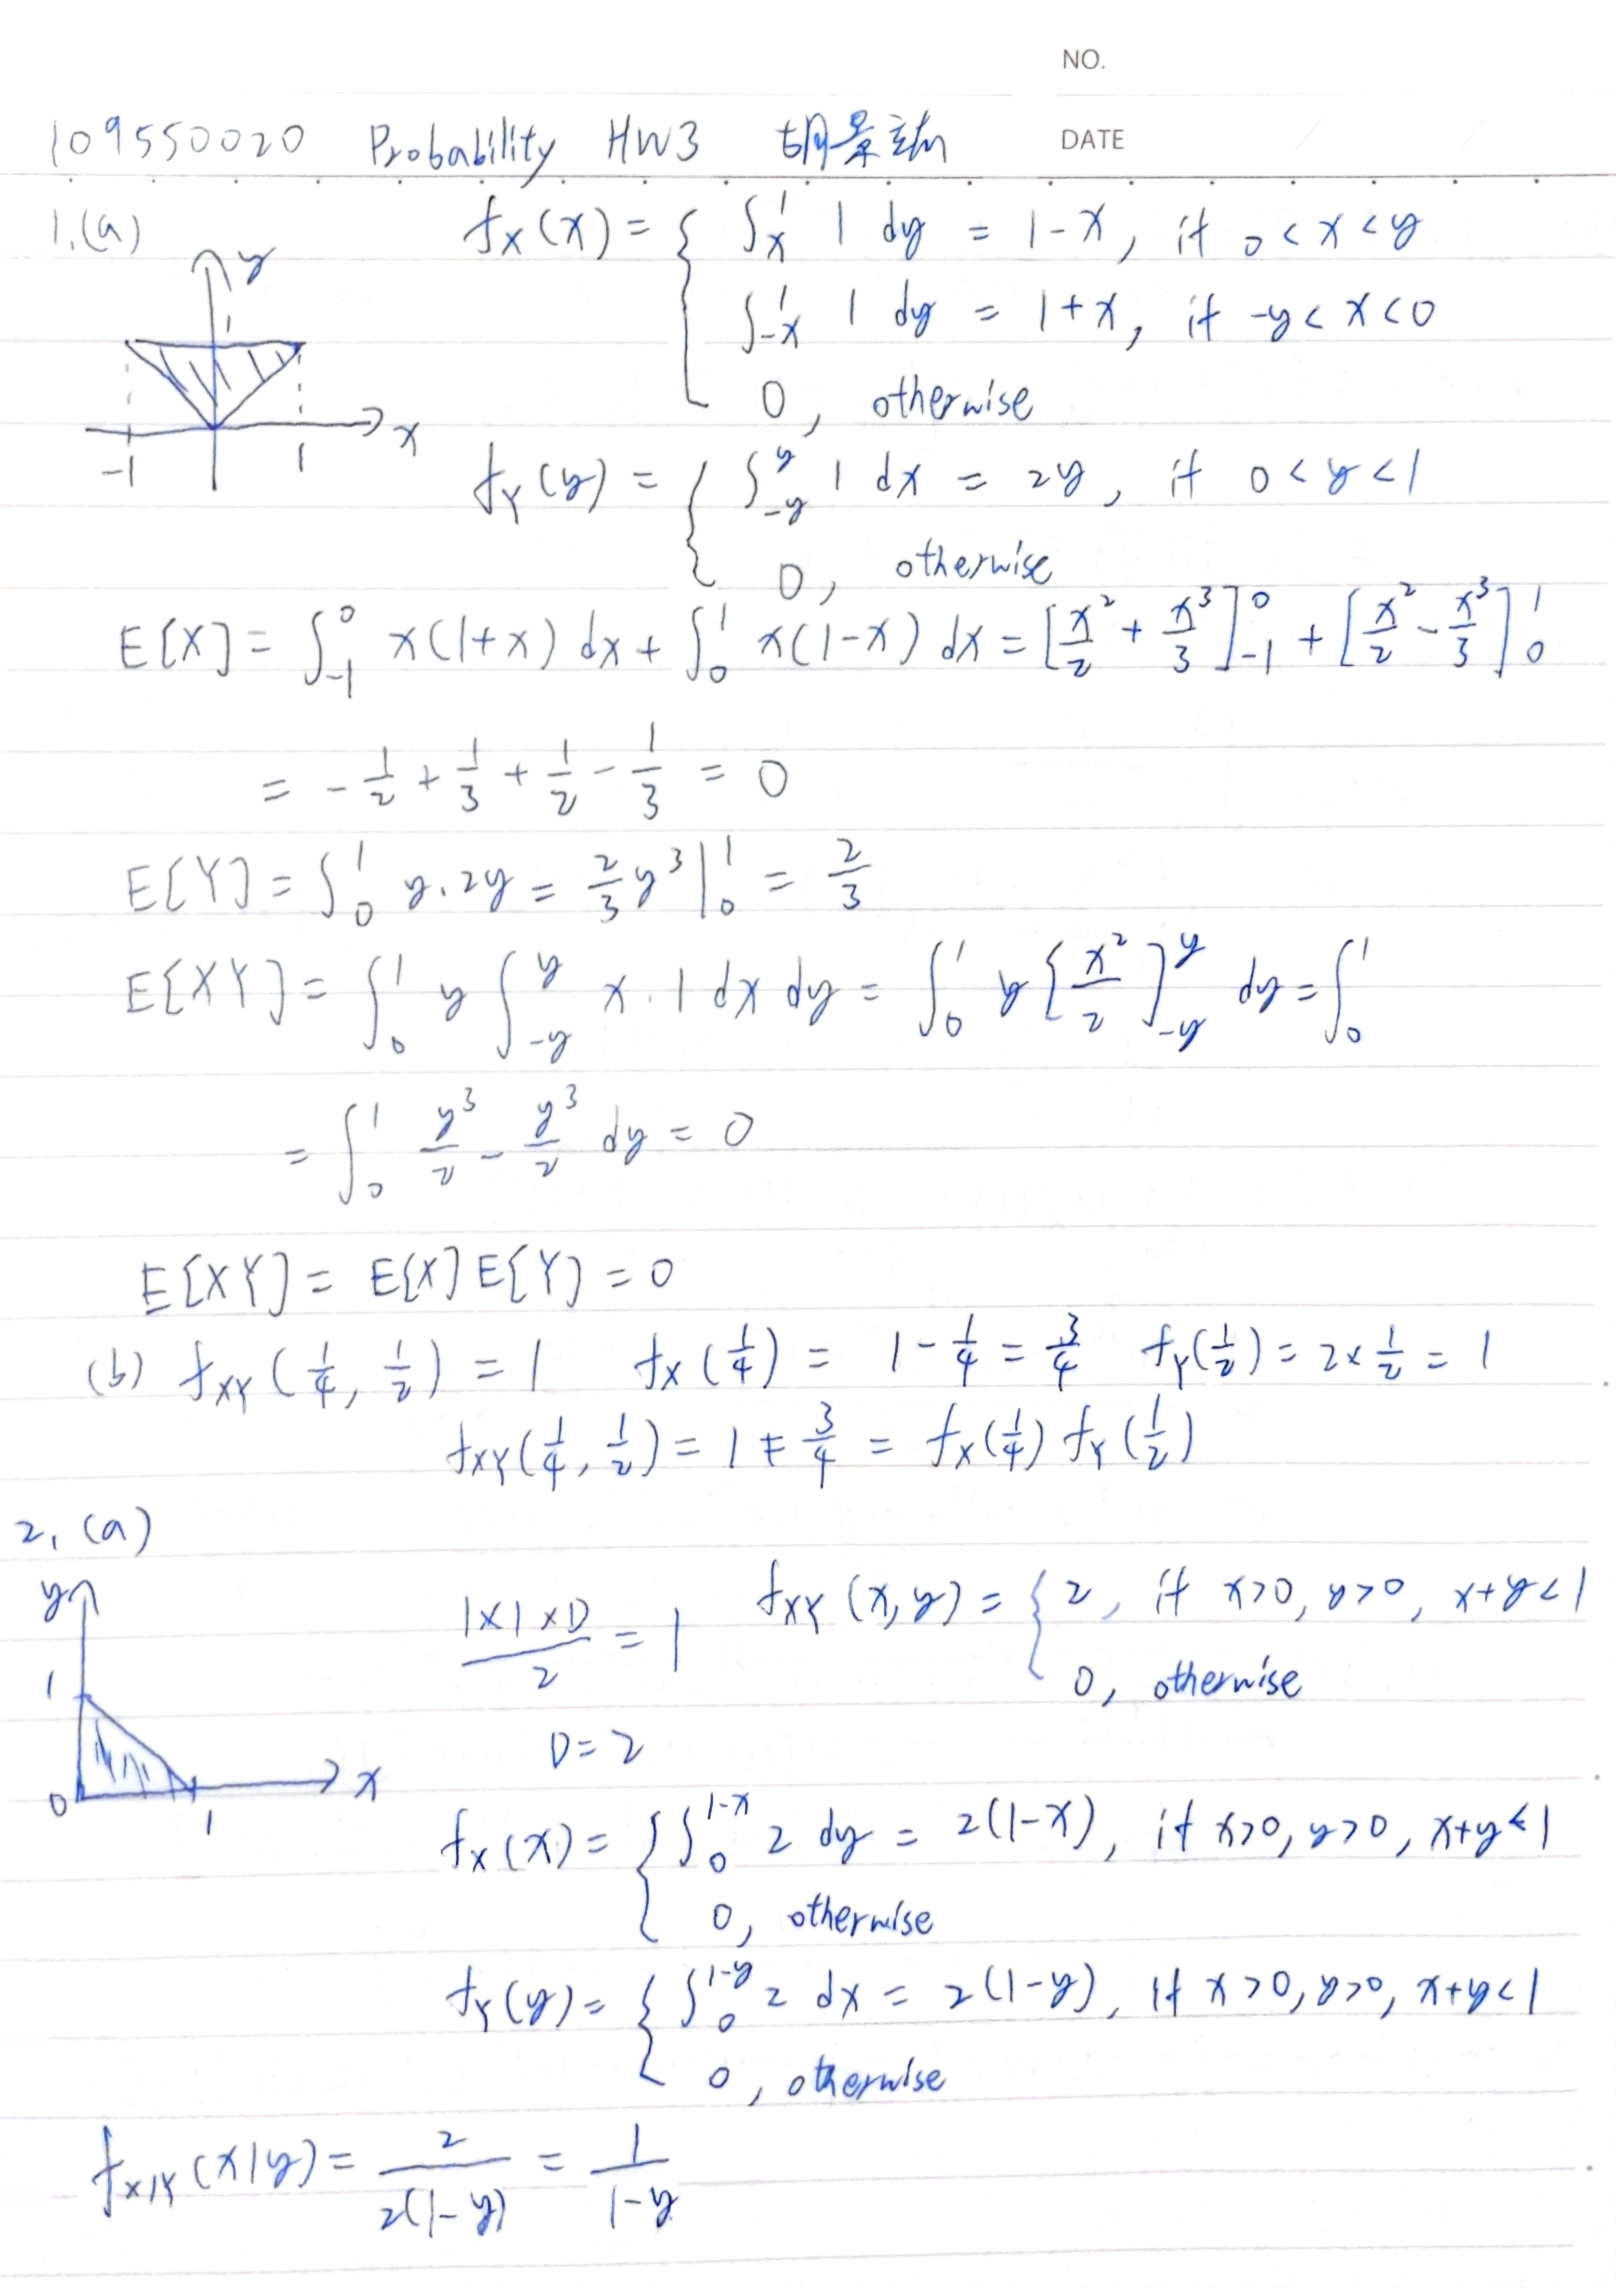 NO.
109550020 Probability HW3 胡景 DATE
1.(a) f_X(x) = { ∫_x^1 1 dy = 1-x, if 0<x<y
∫_{-x}^1 1 dy = 1+x, if -y<x<0
0, otherwise
y
1
-1 1 x
f_Y(y) = { ∫_{-y}^y 1 dx = 2y, if 0<y<1
0, otherwise
E[X] = ∫_{-1}^0 x(1+x) dx + ∫_0^1 x(1-x) dx = [x²/2 + x³/3]_{-1}^0 + [x²/2 - x³/3]_0^1
= -1/2 + 1/3 + 1/2 - 1/3 = 0
E[Y] = ∫_0^1 y·2y = 2/3 y³ |_0^1 = 2/3
E[XY] = ∫_0^1 y ∫_{-y}^y x·1 dx dy = ∫_0^1 y [x²/2]_{-y}^y dy = ∫_0^1
= ∫_0^1 y³/2 - y³/2 dy = 0
E[XY] = E[X]E[Y] = 0
(b) f_XY(1/4, 1/2) = 1 f_X(1/4) = 1 - 1/4 = 3/4 f_Y(1/2) = 2×1/2 = 1
f_XY(1/4, 1/2) = 1 ≠ 3/4 = f_X(1/4) f_Y(1/2)
2. (a)
y
1
0 1 x
1×1×D/2 = 1 f_XY(x,y) = { 2, if x>0, y>0, x+y<1
0, otherwise
D=2
f_X(x) = { ∫_0^{1-x} 2 dy = 2(1-x), if x>0, y>0, x+y<1
0, otherwise
f_Y(y) = { ∫_0^{1-y} 2 dx = 2(1-y), if x>0, y>0, x+y<1
0, otherwise
f_{X|Y}(x|y) = 2/2(1-y) = 1/1-y